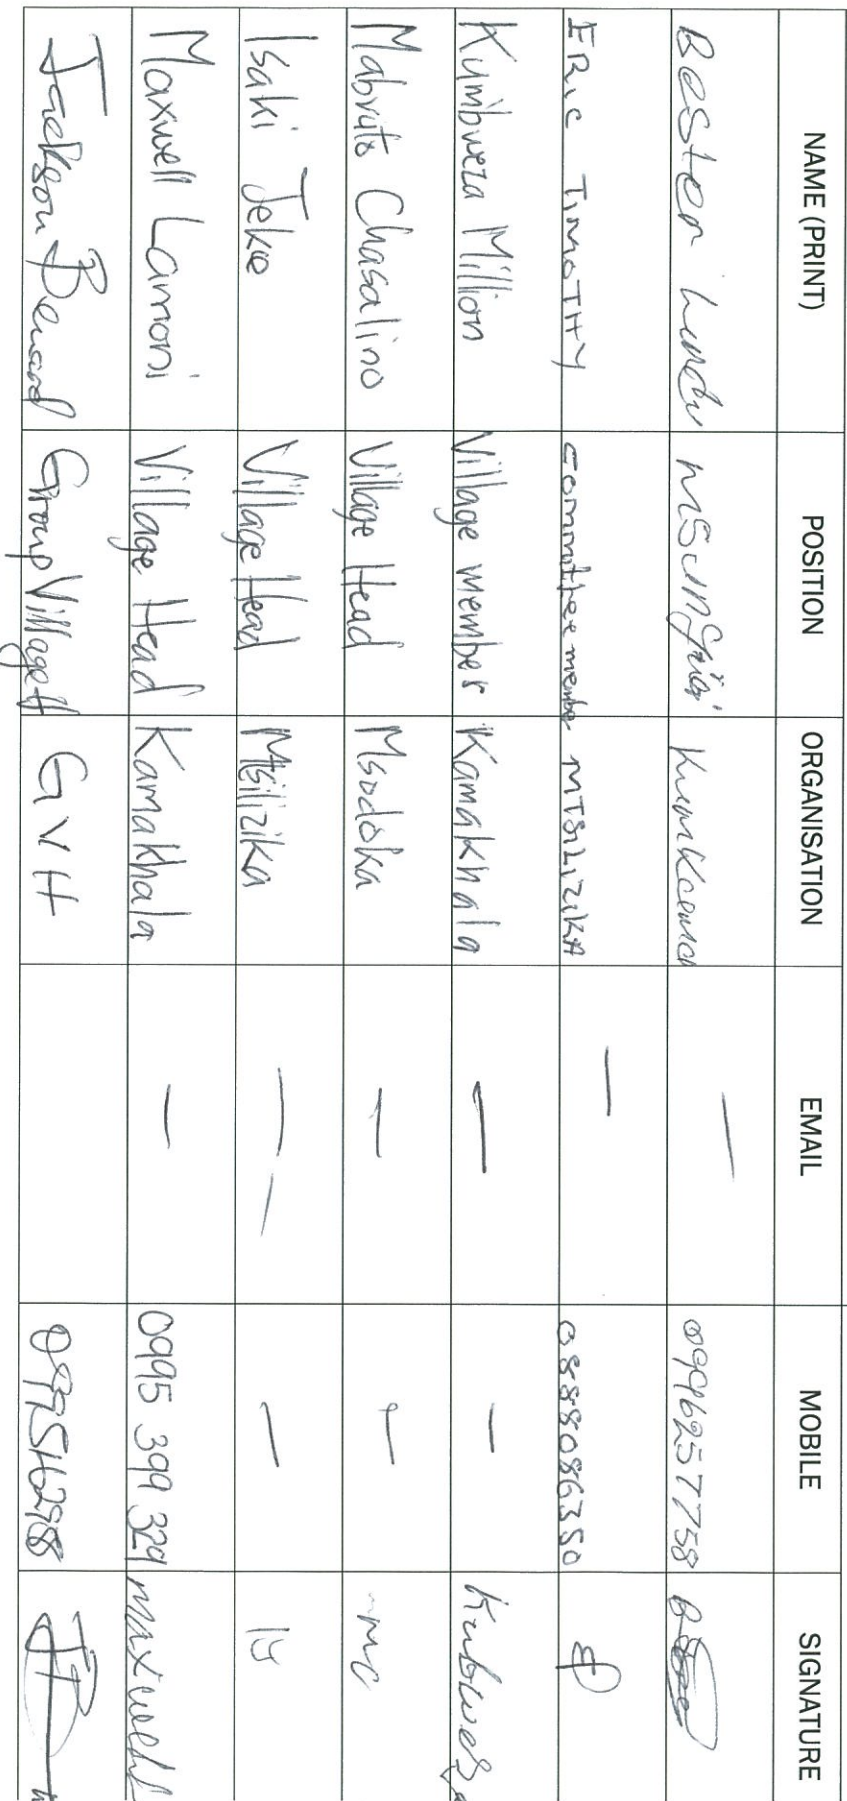 NAME (PRINT) POSITION ORGANISATION EMAIL MOBILE SIGNATURE
Bester — 0996257758
ERIC TIMOTHY committee member MTSILIZIKA — 0888086350
Kumbweza Million Village member Kamakhala — —
Mabvuto Chasalino Village Head Msodoka — — MC
Isaki Jekie Village Head Mtsilizika — — — IJ
Maxwell Lamoni Village Head Kamakhala — 0995 399 329 Maxwell
Jackson Benard Group Village H GVH